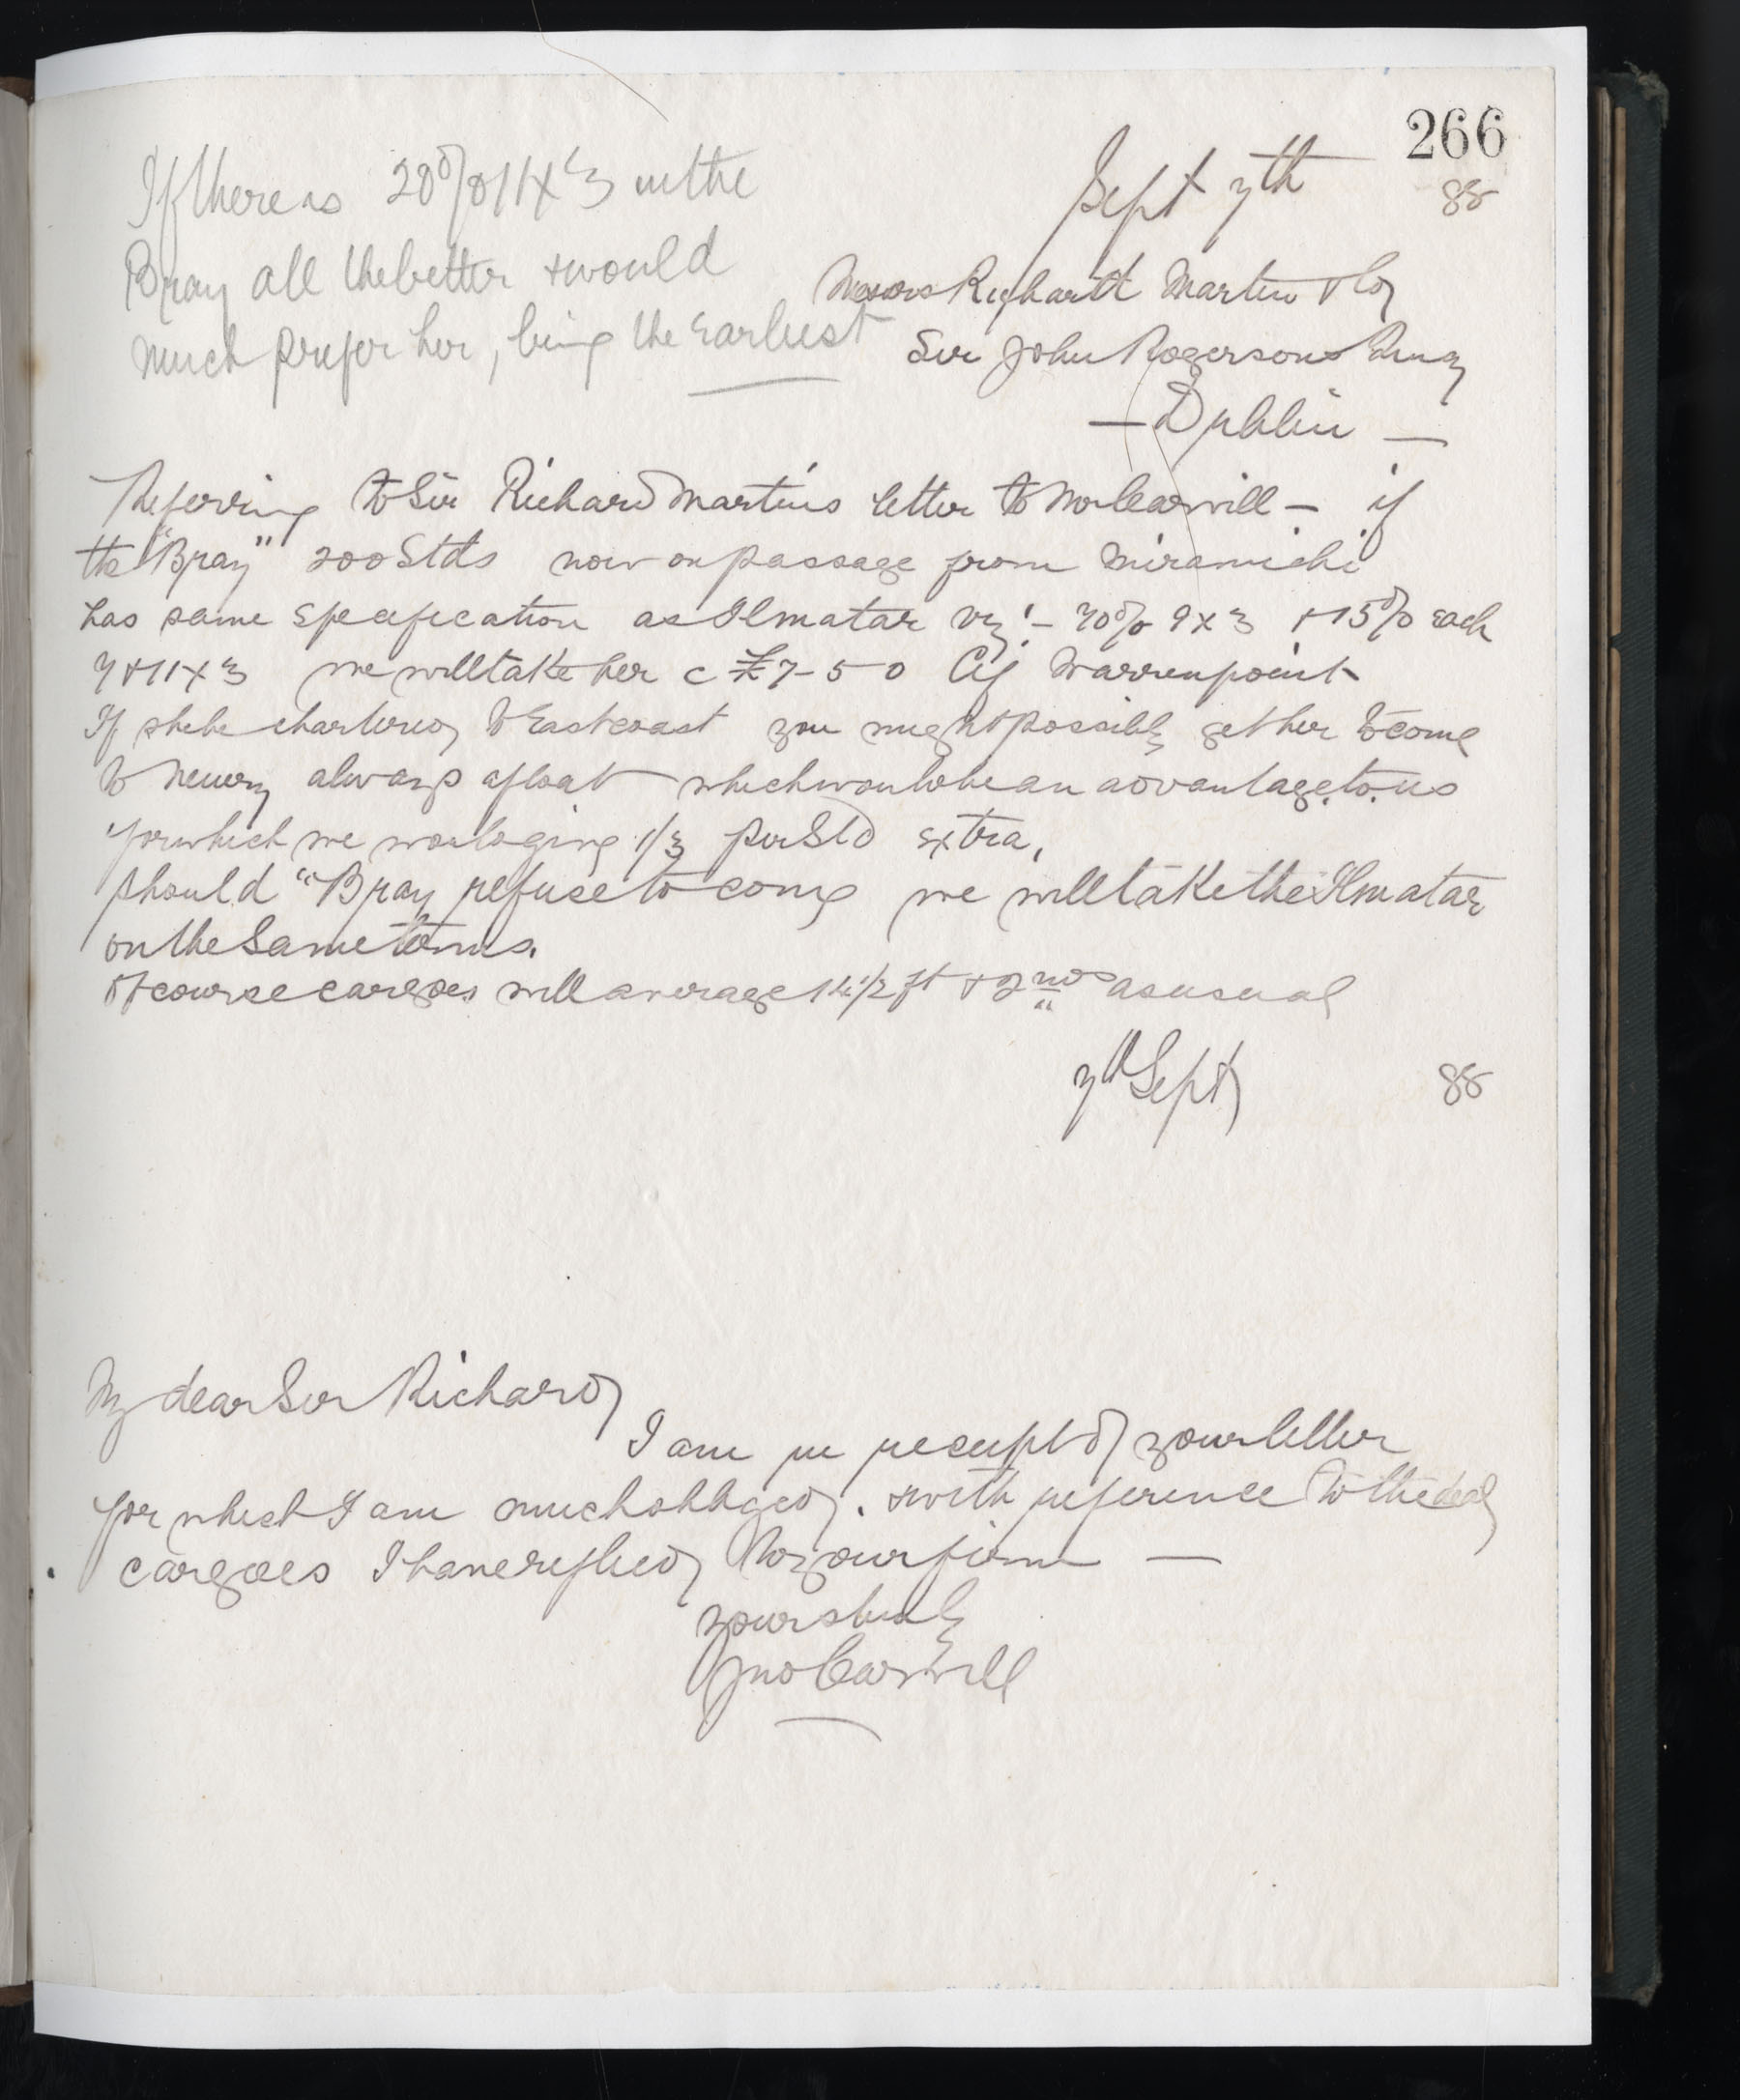 266
If there is 20% 11 x 3 in the
Bray all the better & would
much prefer her, being the Earliest
Sept 7th 88
Messrs Richard Martin & Co
Sir John Rogersons Quay
— Dublin —
Referring to Sir Richard Martins letter to Mr Carvill – if
the "Bray" 200 Stds now on passage from Miramichi
has same specification as Ilmatar viz:- 70% 9 x 3 & 15% each
7 & 11 x 3 we will take her c £7-5-0 Cif Warrenpoint
If she be chartered to East coast you might possibly get her to come
to Newry always afloat which would be an advantage to us
for which we would give 1/3 per Std extra,
should "Bray refuse to come we will take the Ilmatar
on the same terms.
Of course cargoes will average 14 1/2 ft & 2nds as usual
7th Sept 88
My dear Sir Richard
I am in receipt of your letter
for which I am much obliged. & with reference to the deal
cargoes I have replied to your firm —
yours truly
Jno Carvill